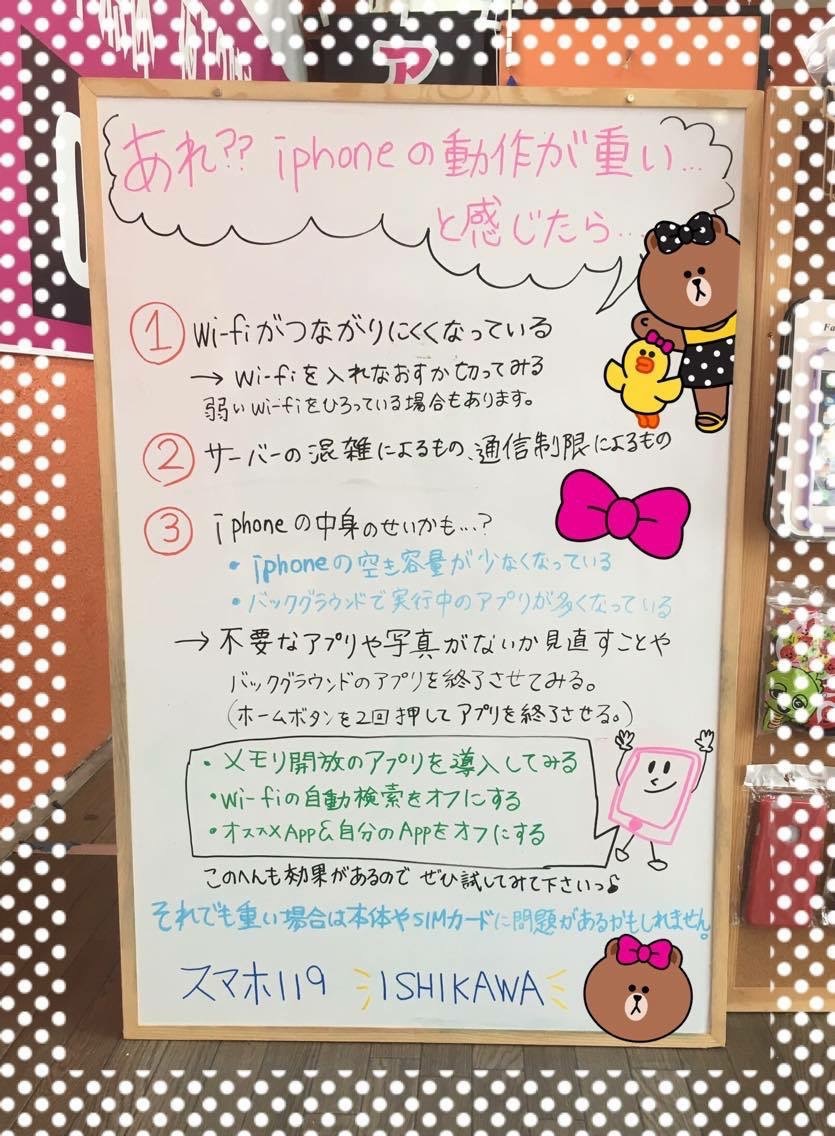 あれ?? iphoneの動作が重い...
と感じたら...
① Wi-fiがつながりにくくなっている
→ Wi-fiを入れなおすか切ってみる
弱いwi-fiをひろっている場合もあります。
② サーバーの混雑によるもの、通信制限によるもの
③ iphoneの中身のせいかも...?
・iphoneの空き容量が少なくなっている
・バックグラウンドで実行中のアプリが多くなっている
→ 不要なアプリや写真がないか見直すことや
バックグラウンドのアプリを終了させてみる。
(ホームボタンを2回押してアプリを終了させる。)
・メモリ開放のアプリを導入してみる
・Wi-fiの自動検索をオフにする
・オススメApp&自分のAppをオフにする
このへんも効果があるので ぜひ試してみて下さいっ♪
それでも重い場合は本体やSIMカードに問題があるかもしれません。
スマホ119 ISHIKAWA